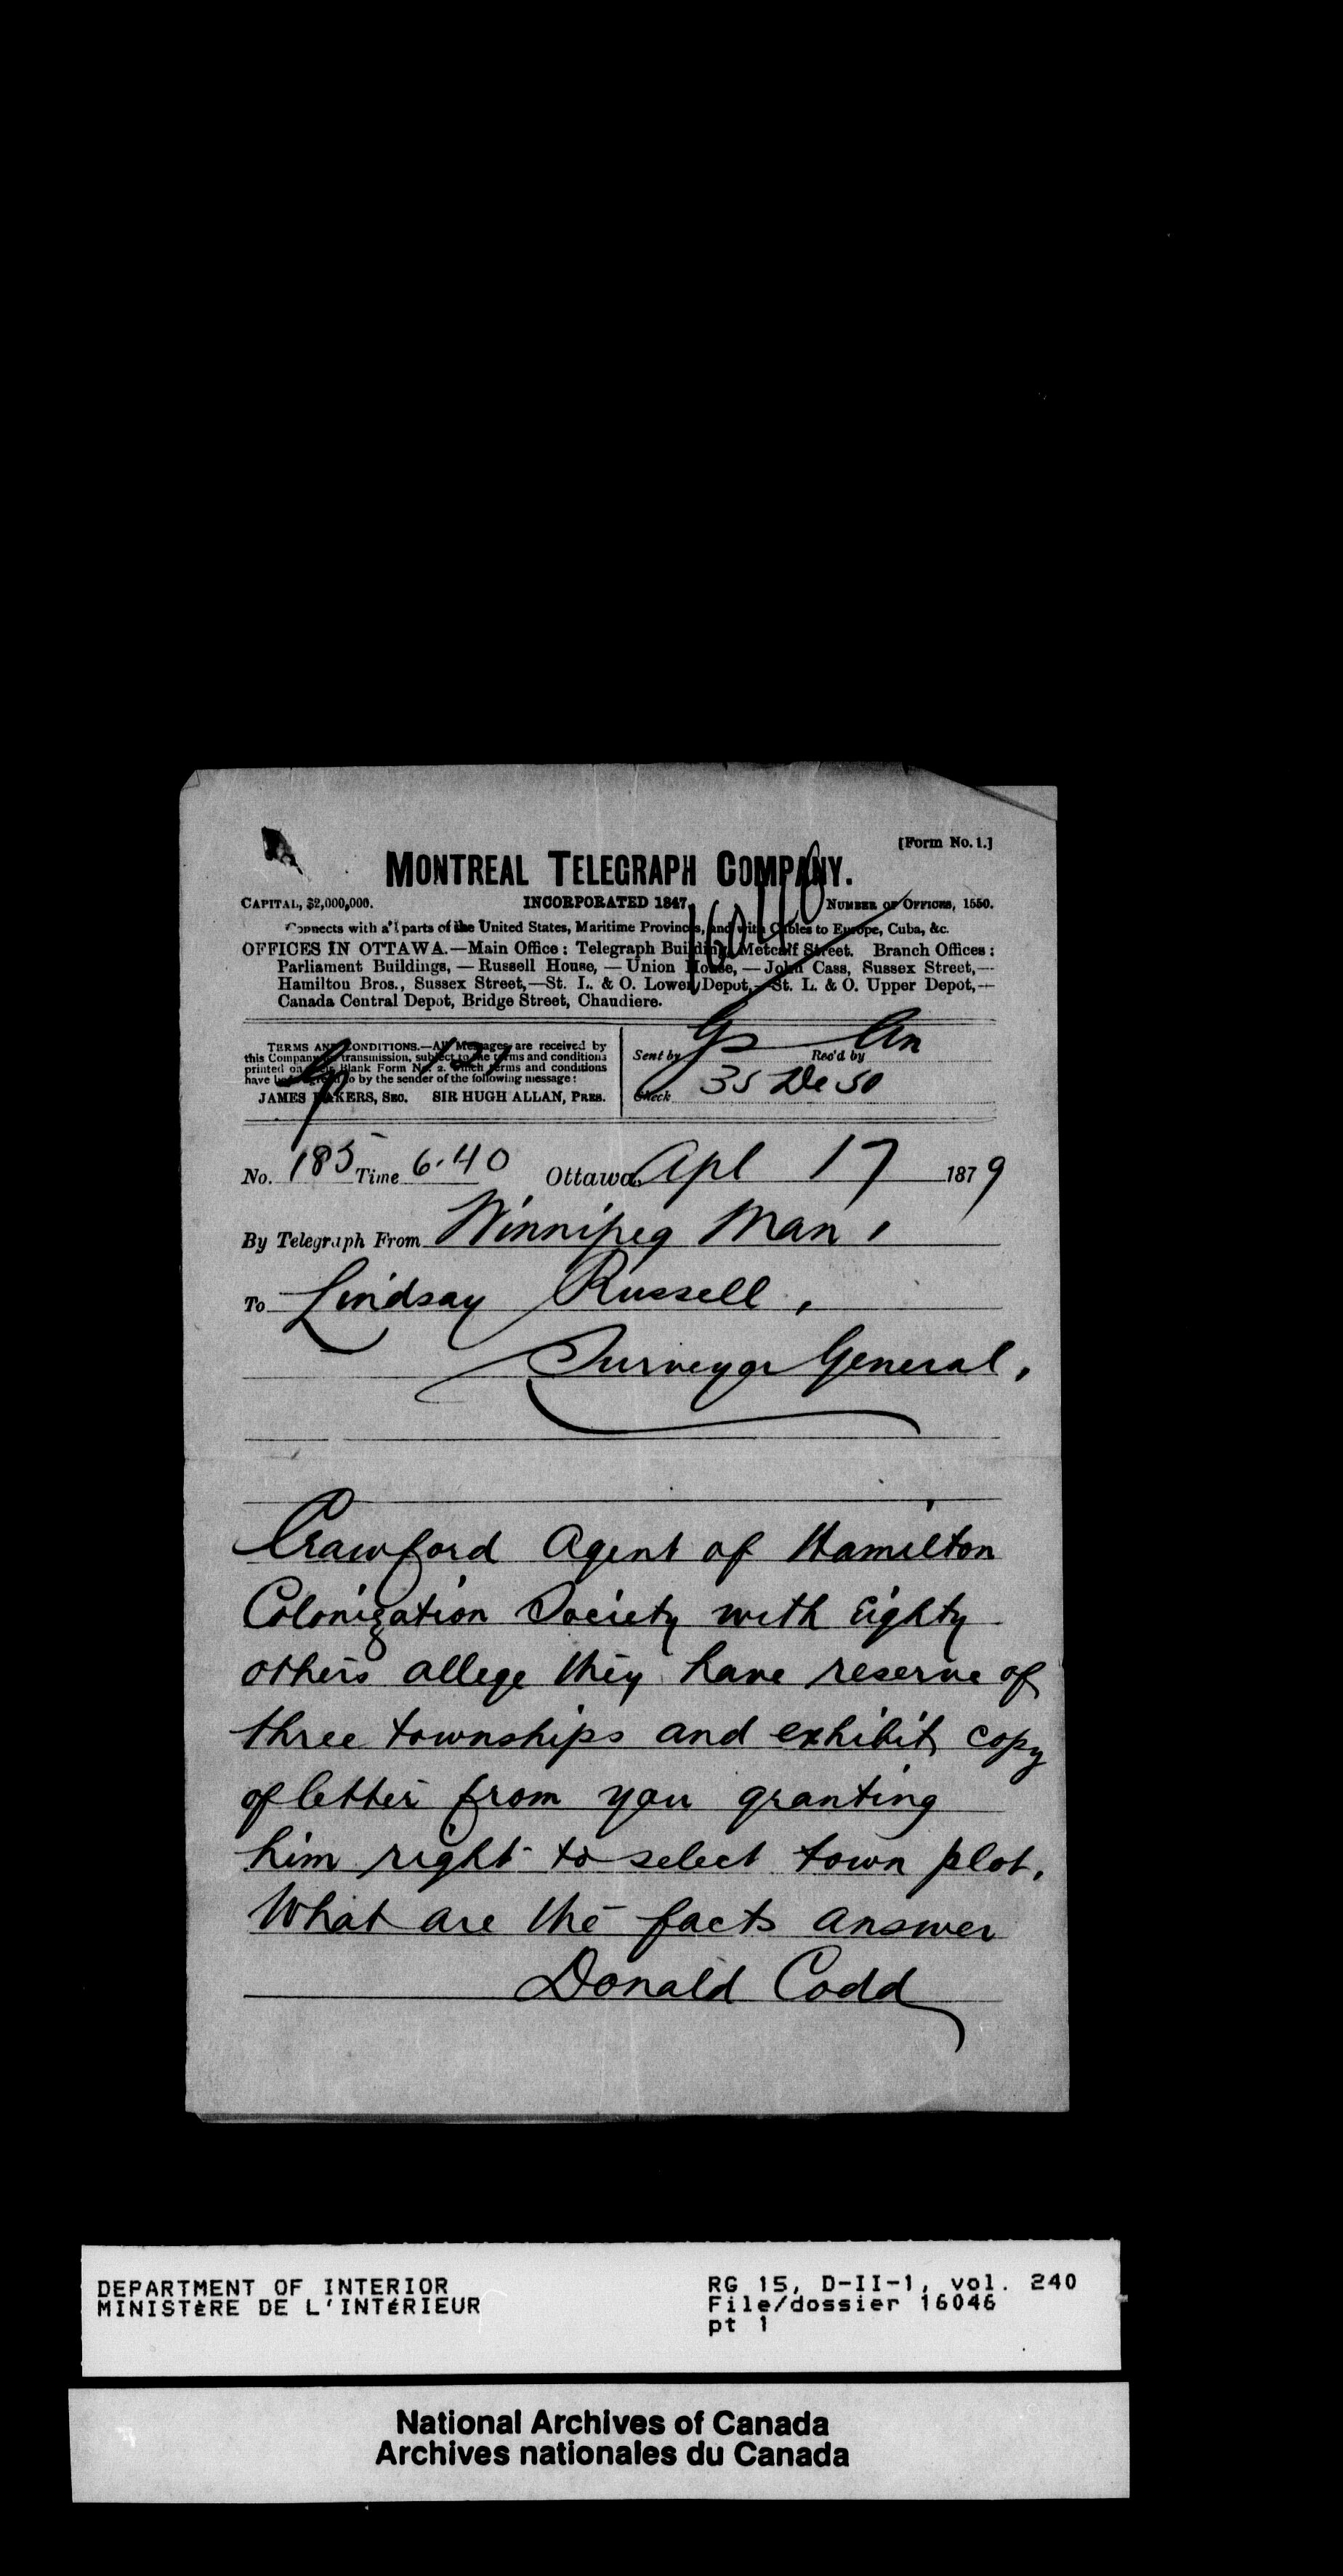 [Form No. 1.]
MONTREAL TELEGRAPH COMPANY.
CAPITAL, $2,000,000. INCORPORATED 1847. NUMBER OF OFFICES, 1550.
Connects with all parts of the United States, Maritime Provinces, and with Cables to Europe, Cuba, &c.
OFFICES IN OTTAWA.—Main Office: Telegraph Building, Metcalf Street. Branch Offices:
Parliament Buildings, — Russell House, — Union House, — John Cass, Sussex Street,—
Hamilton Bros., Sussex Street,—St. L. & O. Lower Depot,—St. L. & O. Upper Depot,—
Canada Central Depot, Bridge Street, Chaudiere.
16046
TERMS AND CONDITIONS.—All Messages are received by
this Company for transmission, subject to the terms and conditions
printed on their Blank Form No. 2. which terms and conditions
have been agreed to by the sender of the following message:
JAMES DAKERS, SEC. SIR HUGH ALLAN, PRES.
121
Sent by Rec'd by
Check 35 De 50
No. 185 Time 6.40 Ottawa, Apl 17 1879
By Telegraph From Winnipeg Man,
To Lindsay Russell,
Surveyor General,
Crawford Agent of Hamilton
Colonization Society with Eighty
others allege they have reserve of
three townships and exhibit copy
of letter from you granting
him right to select town plot.
What are the facts answer
Donald Codd
DEPARTMENT OF INTERIOR
MINISTÈRE DE L'INTÉRIEUR
RG 15, D-II-1, vol. 240
File/dossier 16046
pt 1
National Archives of Canada
Archives nationales du Canada